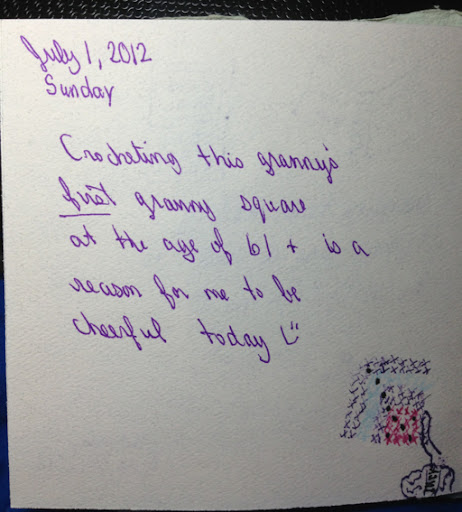 July 1, 2012
Sunday
Crocheting this granny's
first granny square
at the age of 61 + is a
reason for me to be
cheerful today